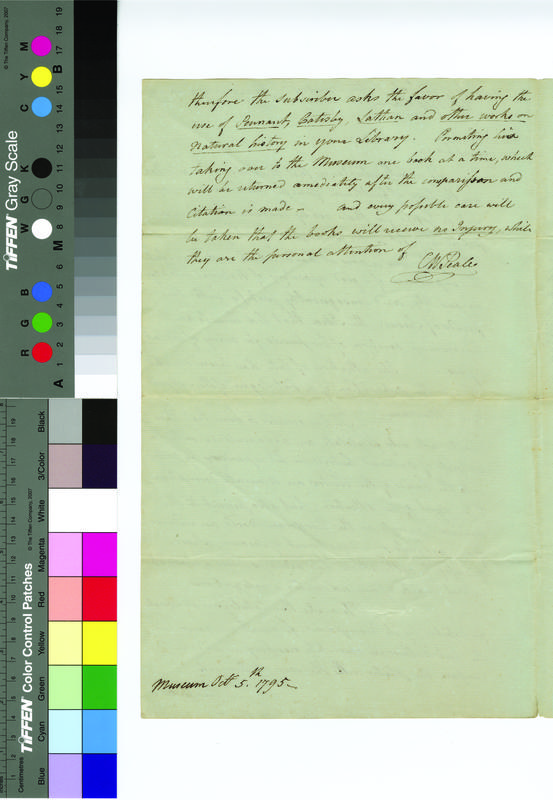 therefore the subscriber asks the favor of having the
use of Pennant, Catisby, Lathan and other works on
Natural history in your Library. Permiting him
taking over to the Museum one book at a time, which
will be returned amediatily after the comparisson and
Citation is made — and every possible care will
be taken that the books will receive no Injury, while
they are the personal attention of
CWPeale
Museum Oct 5.th 1795—
TIFFEN Gray Scale
© The Tiffen Company, 2007
R G B W G K C Y M
A 1 2 3 4 5 6 M 8 9 10 11 12 13 14 15 B 17 18 19
TIFFEN Color Control Patches
© The Tiffen Company, 2007
Centimetres
Blue Cyan Green Yellow Red Magenta White 3/Color Black